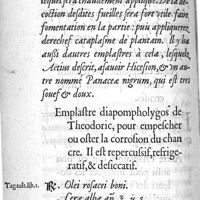 lesquels sera chaudement appliqué. De la de
coction desdites fueilles sera fort vtile faire
fomentation en la partie: puis appliquerez
derechef cataplasme de plantain. Il y ha
aussi dautres emplastres à cela, lesquelz
Actius descrit, asauoir Hicesion, & vn au-
tre nommé Panacea nigrum, qui est tres
souef & doux.
Emplastre diapompholygos de
Theodoric, pour empescher
ou oster la corrosion du chan
cre. Il est repercusif, refrige-
ratif, & desiccatif.
Tagault.lib.1. ℞. Olei rosacei boni.
Ceræ albæ an. ℥. v. s.